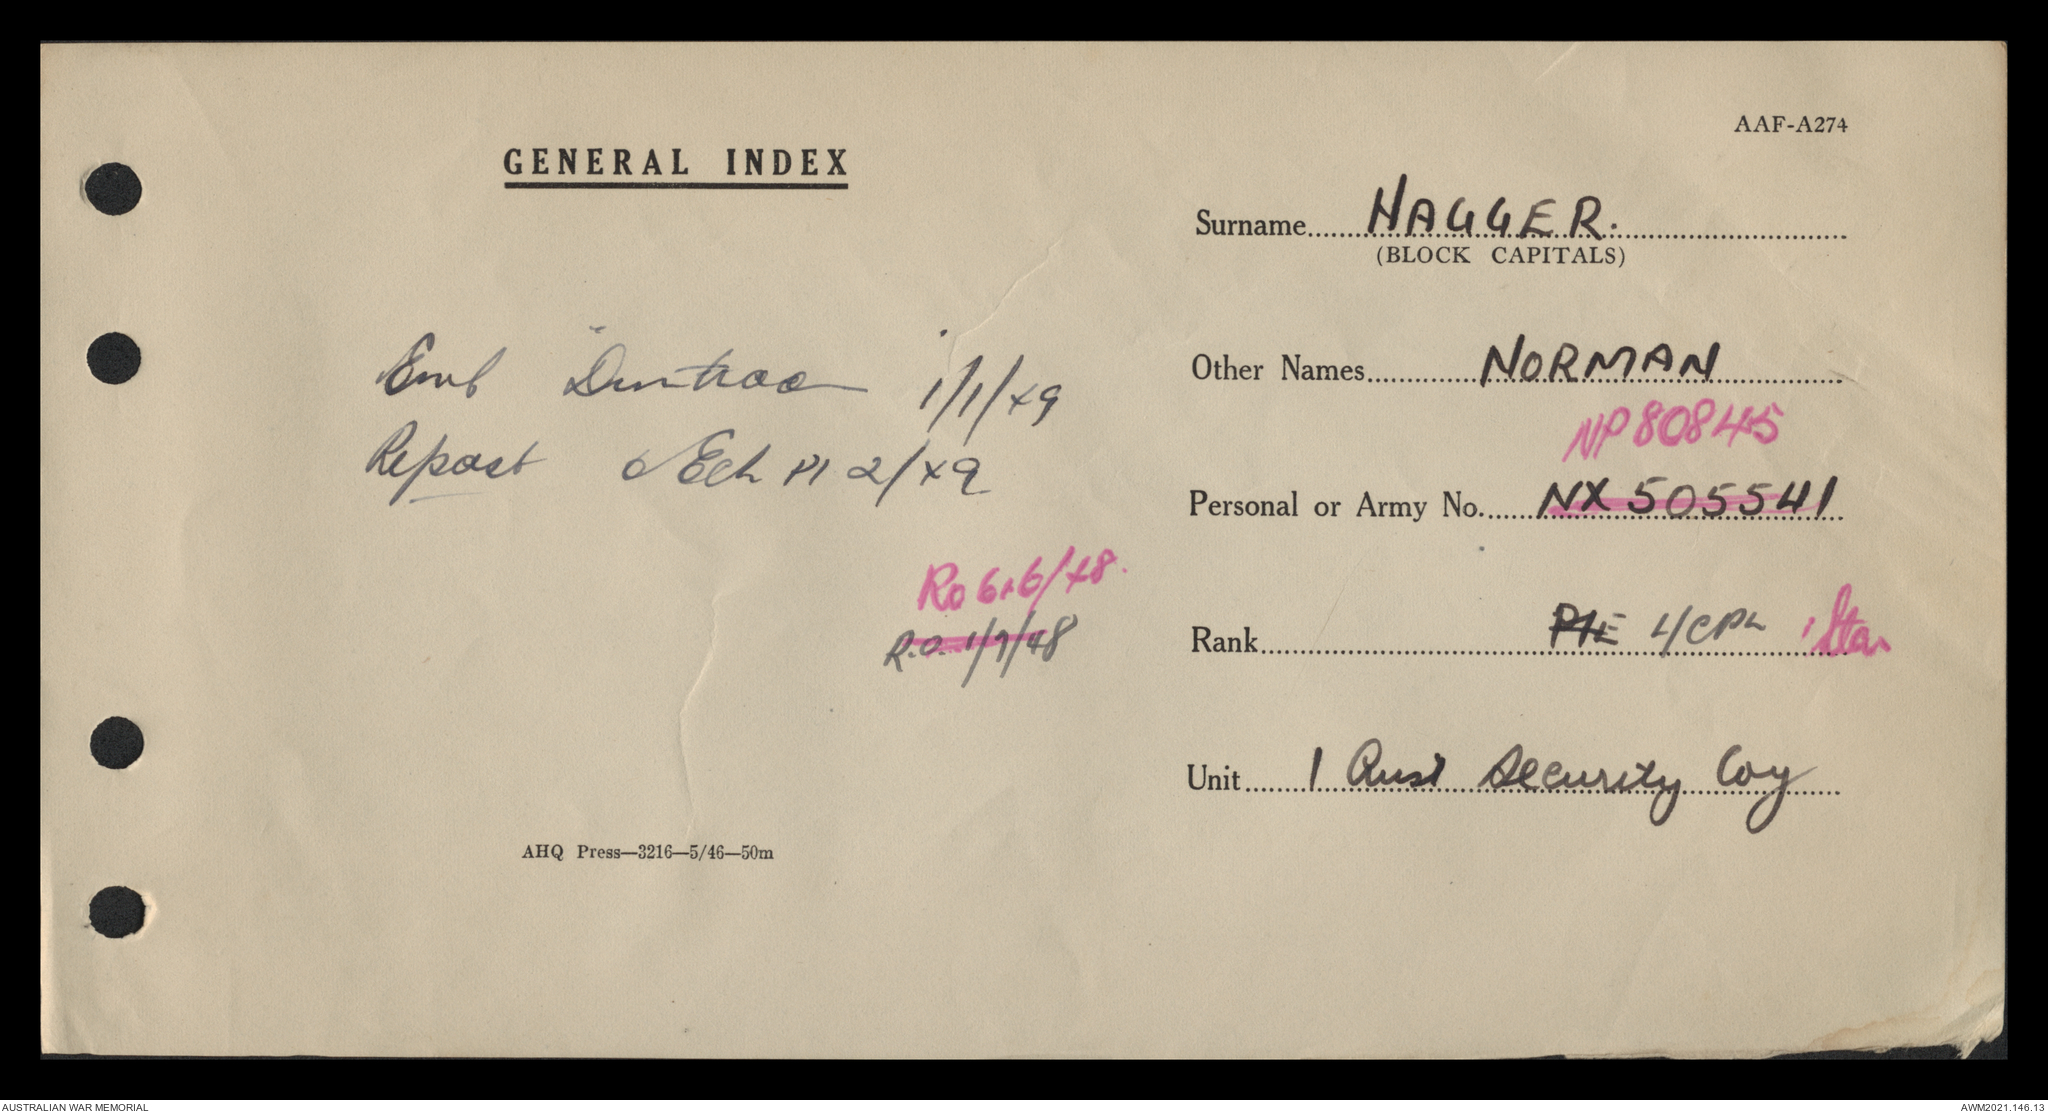 GENERAL INDEX
Emb "Duntroon" 1/1/49
Repost Ech Pt 2/49
Ro 6.6/48.
R.O. 1/9/48
AHQ Press—3216—5/46—50m
AAF-A274
Surname HAGGER.
(BLOCK CAPITALS)
Other Names NORMAN
NP80845
Personal or Army No. NX505541
Rank PTE L/CPL
Unit 1 Aust Security Coy
AUSTRALIAN WAR MEMORIAL
AWM2021.146.13